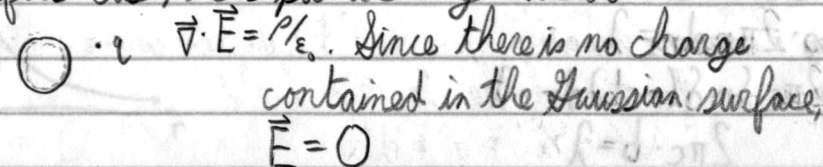 · q ∇⃗·E⃗ = ρ/ε₀. Since there is no charge
contained in the Gaussian surface,
E⃗ = 0